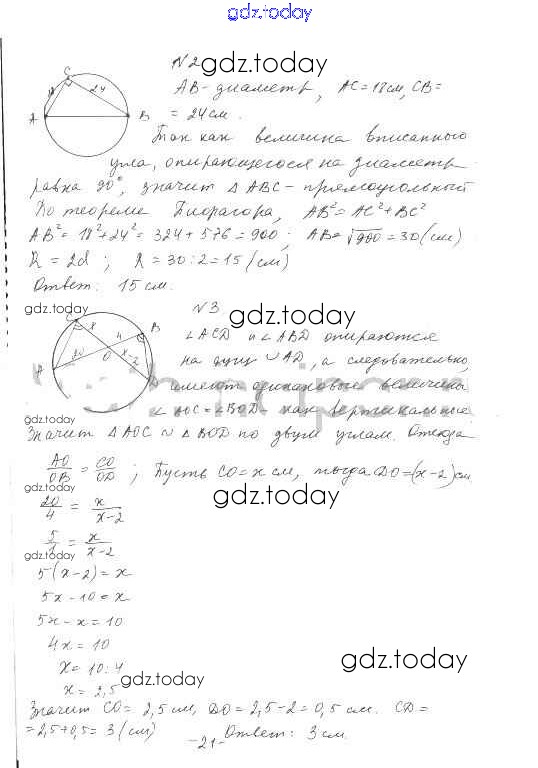 gdz.today
N2 gdz.today
C
18 24
A B
AB - диаметр, AC = 18 см, CB =
= 24 см.
Так как величина вписанного
угла, опирающегося на диаметр
равна 90°, значит △ABC - прямоугольный
По теореме Пифагора, AB² = AC² + BC²
AB² = 18² + 24² = 324 + 576 = 900; AB = √900 = 30 (см)
R = 2d; R = 30 : 2 = 15 (см)
Ответ: 15 см.
gdz.today
N3
gdz.today
C x 4 B
O x-2
A 20
∠ACD и ∠ABD опираются
на дугу ◡AD, а следовательно,
имеют одинаковые величины
∠AOC = ∠BOD - как вертикальные
gdz.today
Значит △AOC ∾ △BOD по двум углам. Отсюда
AO/OB = CO/OD; Пусть CO = x см, тогда DO = (x-2) см
gdz.today
gdz.today
20/4 = x/x-2
gdz.today
5/1 = x/x-2
gdz.today
5(x-2) = x
5x - 10 = x
5x - x = 10
4x = 10
x = 10 : 4
gdz.today
x = 2,5
gdz.today
Значит CO = 2,5 см, DO = 2,5 - 2 = 0,5 см. CD =
= 2,5 + 0,5 = 3 (см)
Ответ: 3 см.
-21-